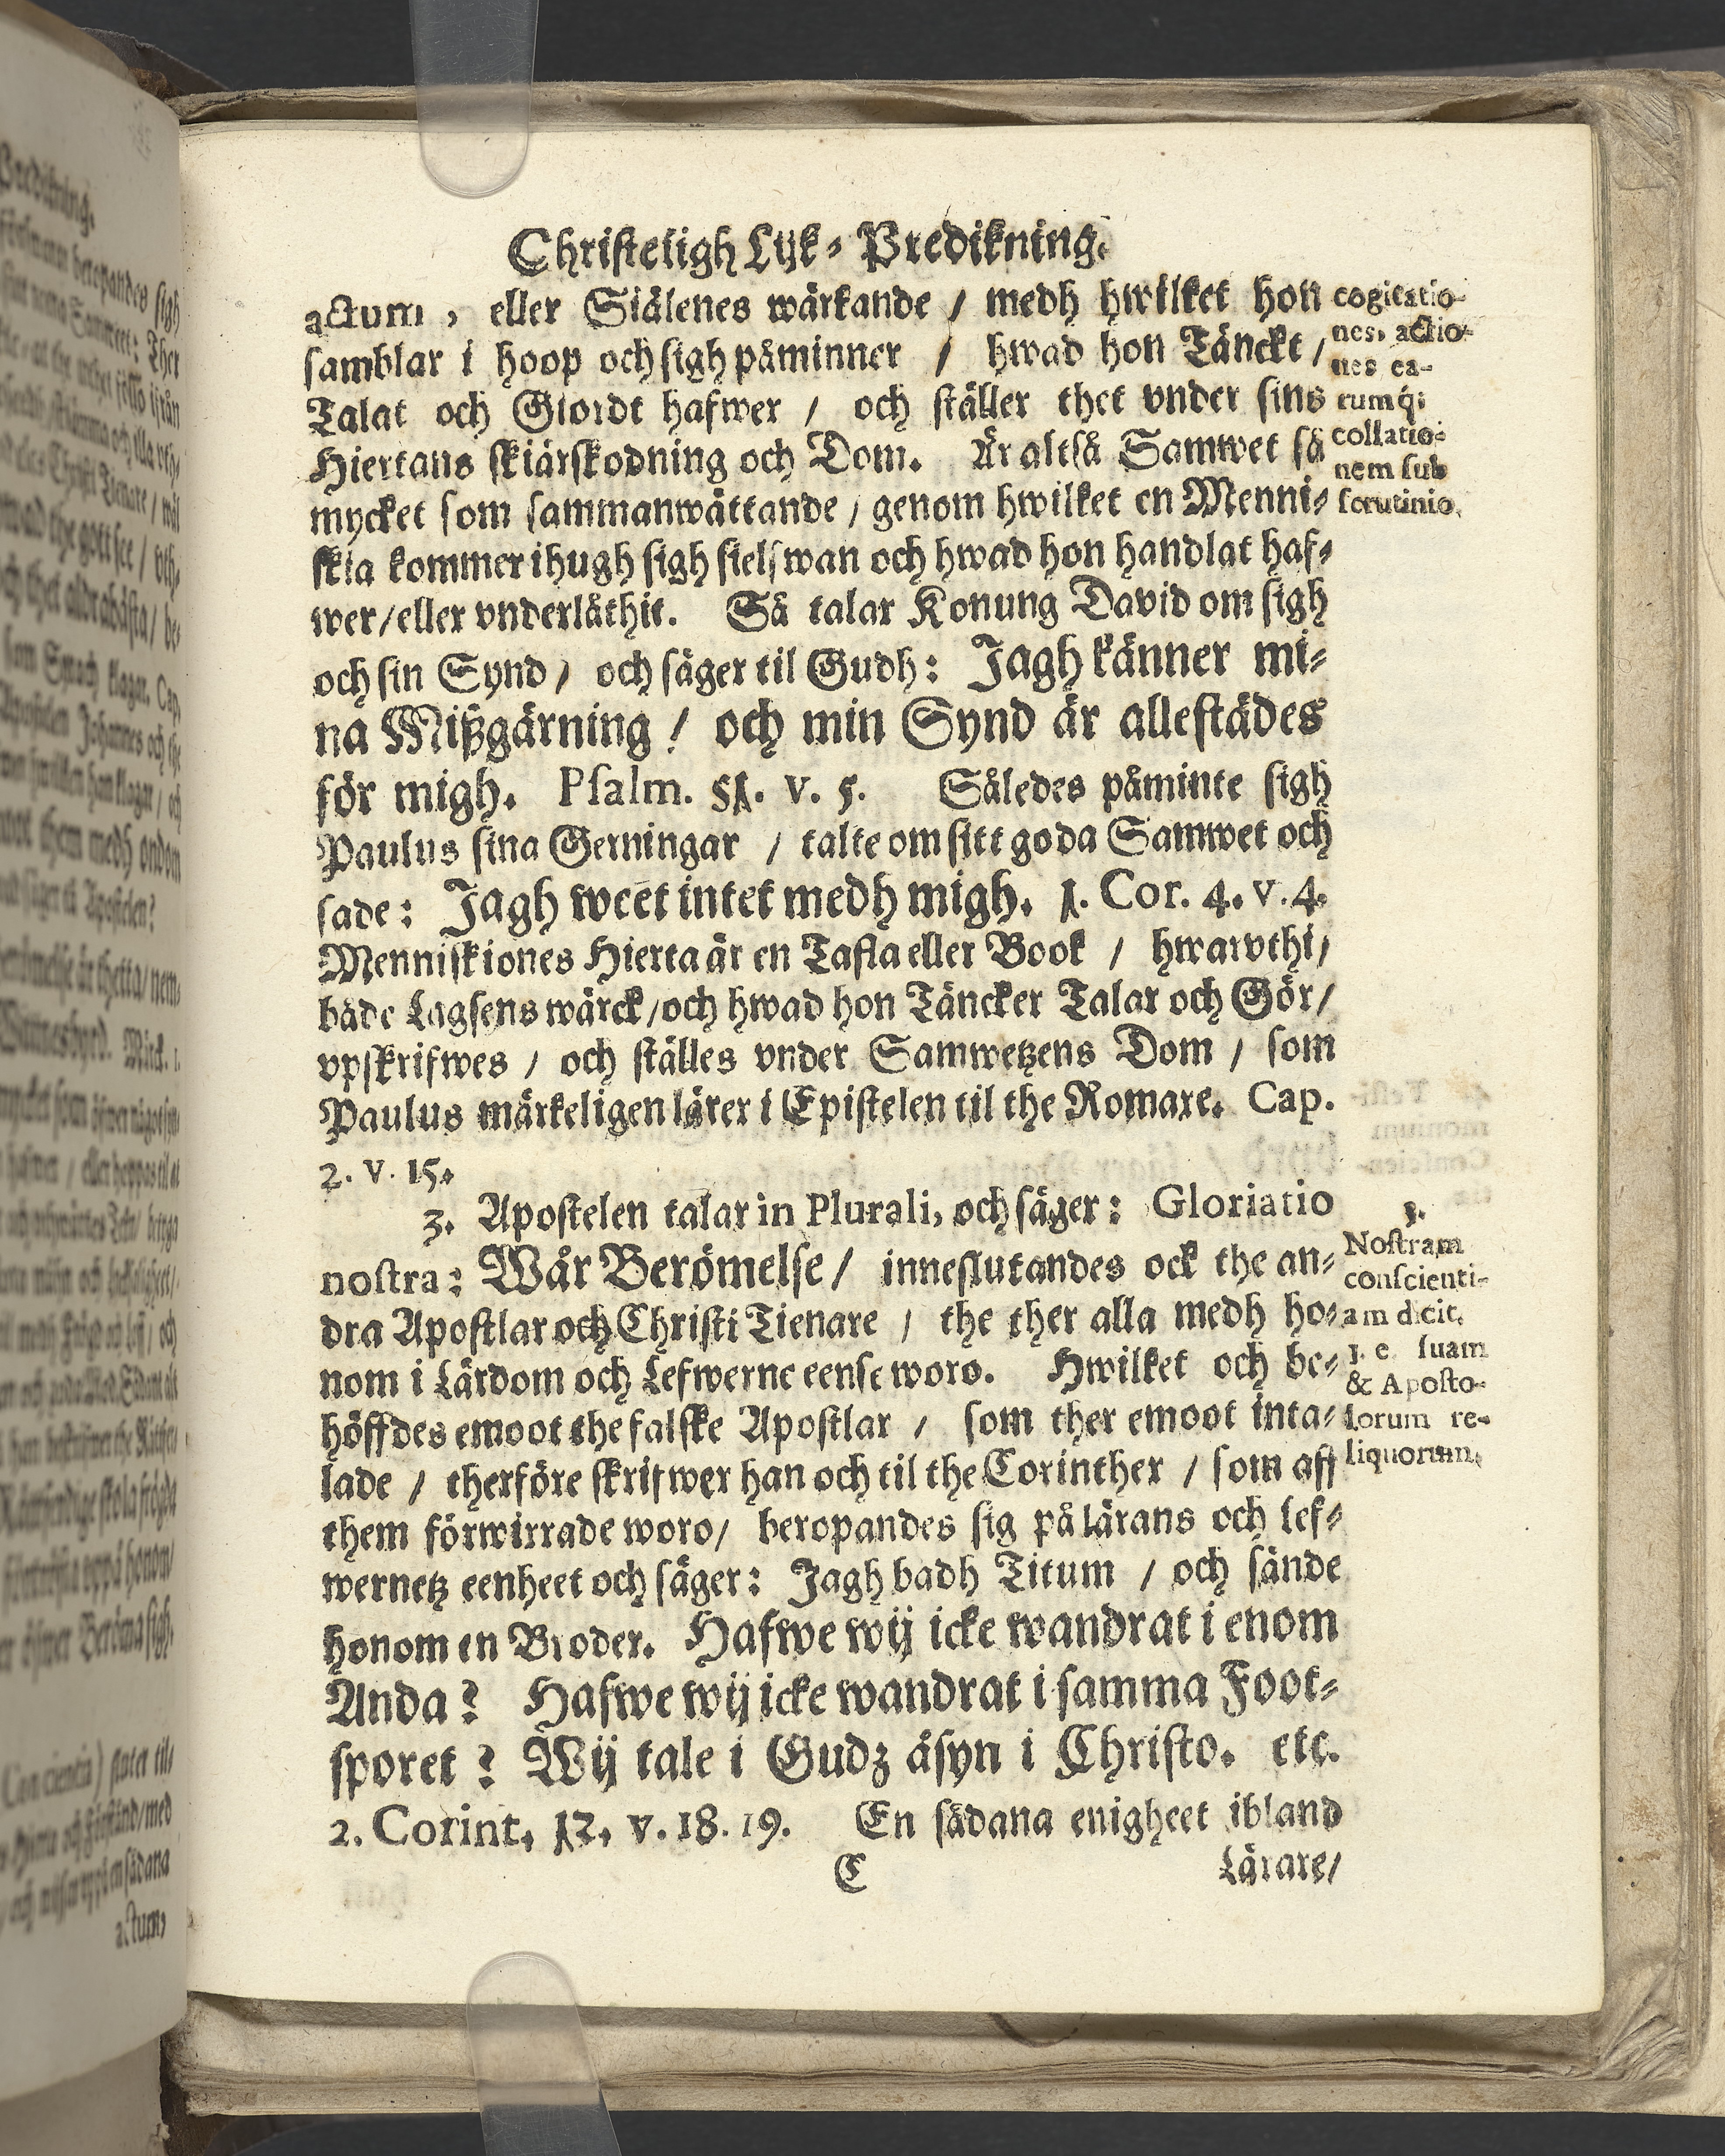 Christeligh Lijk-Predikning.
actum, eller Siälenes wärkande / medh hwilket hon
samblar i hoop och sigh påminner / hwad hon Tänckt /
Talat och Giordt hafwer / och ställer thet vnder sins
Hiertans skiärskodning och Dom. Är altså Samwet så
mycket som sammanwättande / genom hwilket en Menni-
skia kommer ihugh sigh sielfwan och hwad hon handlat haf-
wer / eller vnderlåthit. Så talar Konung David om sigh
och sin Synd / och säger til Gudh: Jagh känner mi-
na Mißgärning / och min Synd är allestädes
för migh. Psalm. 51. v. 5. Således påminte sigh
Paulus sina Gerningar / talte om sitt goda Samwet och
sade: Jagh weet intet medh migh. 1. Cor. 4. v. 4.
Menniskiones Hierta är en Tafla eller Book / hwarvthi /
både Lagsens wärck / och hwad hon Täncker Talar och Gör /
vpskrifwes / och ställes vnder Samwetzens Dom / som
Paulus märkeligen lärer i Epistelen til the Romare. Cap.
2. v. 15.
3. Apostelen talar in Plurali, och säger: Gloriatio
nostra: Wår Berömelse / inneslutandes ock the an-
dra Apostlar och Christi Tienare / the ther alla medh ho-
nom i Lärdom och Lefwerne eense woro. Hwilket och be-
höffdes emoot the falske Apostlar / som ther emoot inta-
lade / therföre skrifwer han och til the Corinther / som aff
them förwirrade woro / beropandes sig på lärans och lef-
wernetz eenheet och säger: Jagh badh Titum / och sände
honom en Broder. Hafwe wij icke wandrat i enom
Anda? Hafwe wij icke wandrat i samma Foot-
sporet? Wij tale i Gudz åsyn i Christo. etc.
2. Corint. 12. v. 18. 19. En sådana enigheet ibland
C Lärare /
cogitatio-
nes, actio-
nes ea-
rumq;
collatio-
nem sub
scrutinio.
3.
Nostram
conscienti-
am dicit,
i. e. suam
& Aposto-
lorum re-
liquorum.